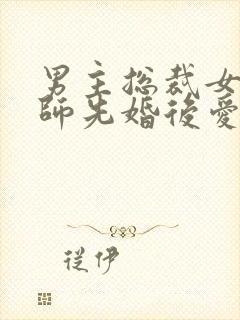 男主总裁女
師先婚後愛
從伊